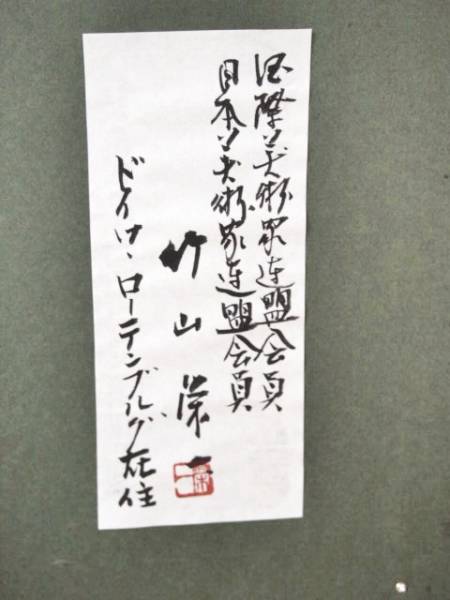 国際美術家連盟会員
日本美術家連盟会員
竹山栄一
ドイツ・ローテンブルグ在住